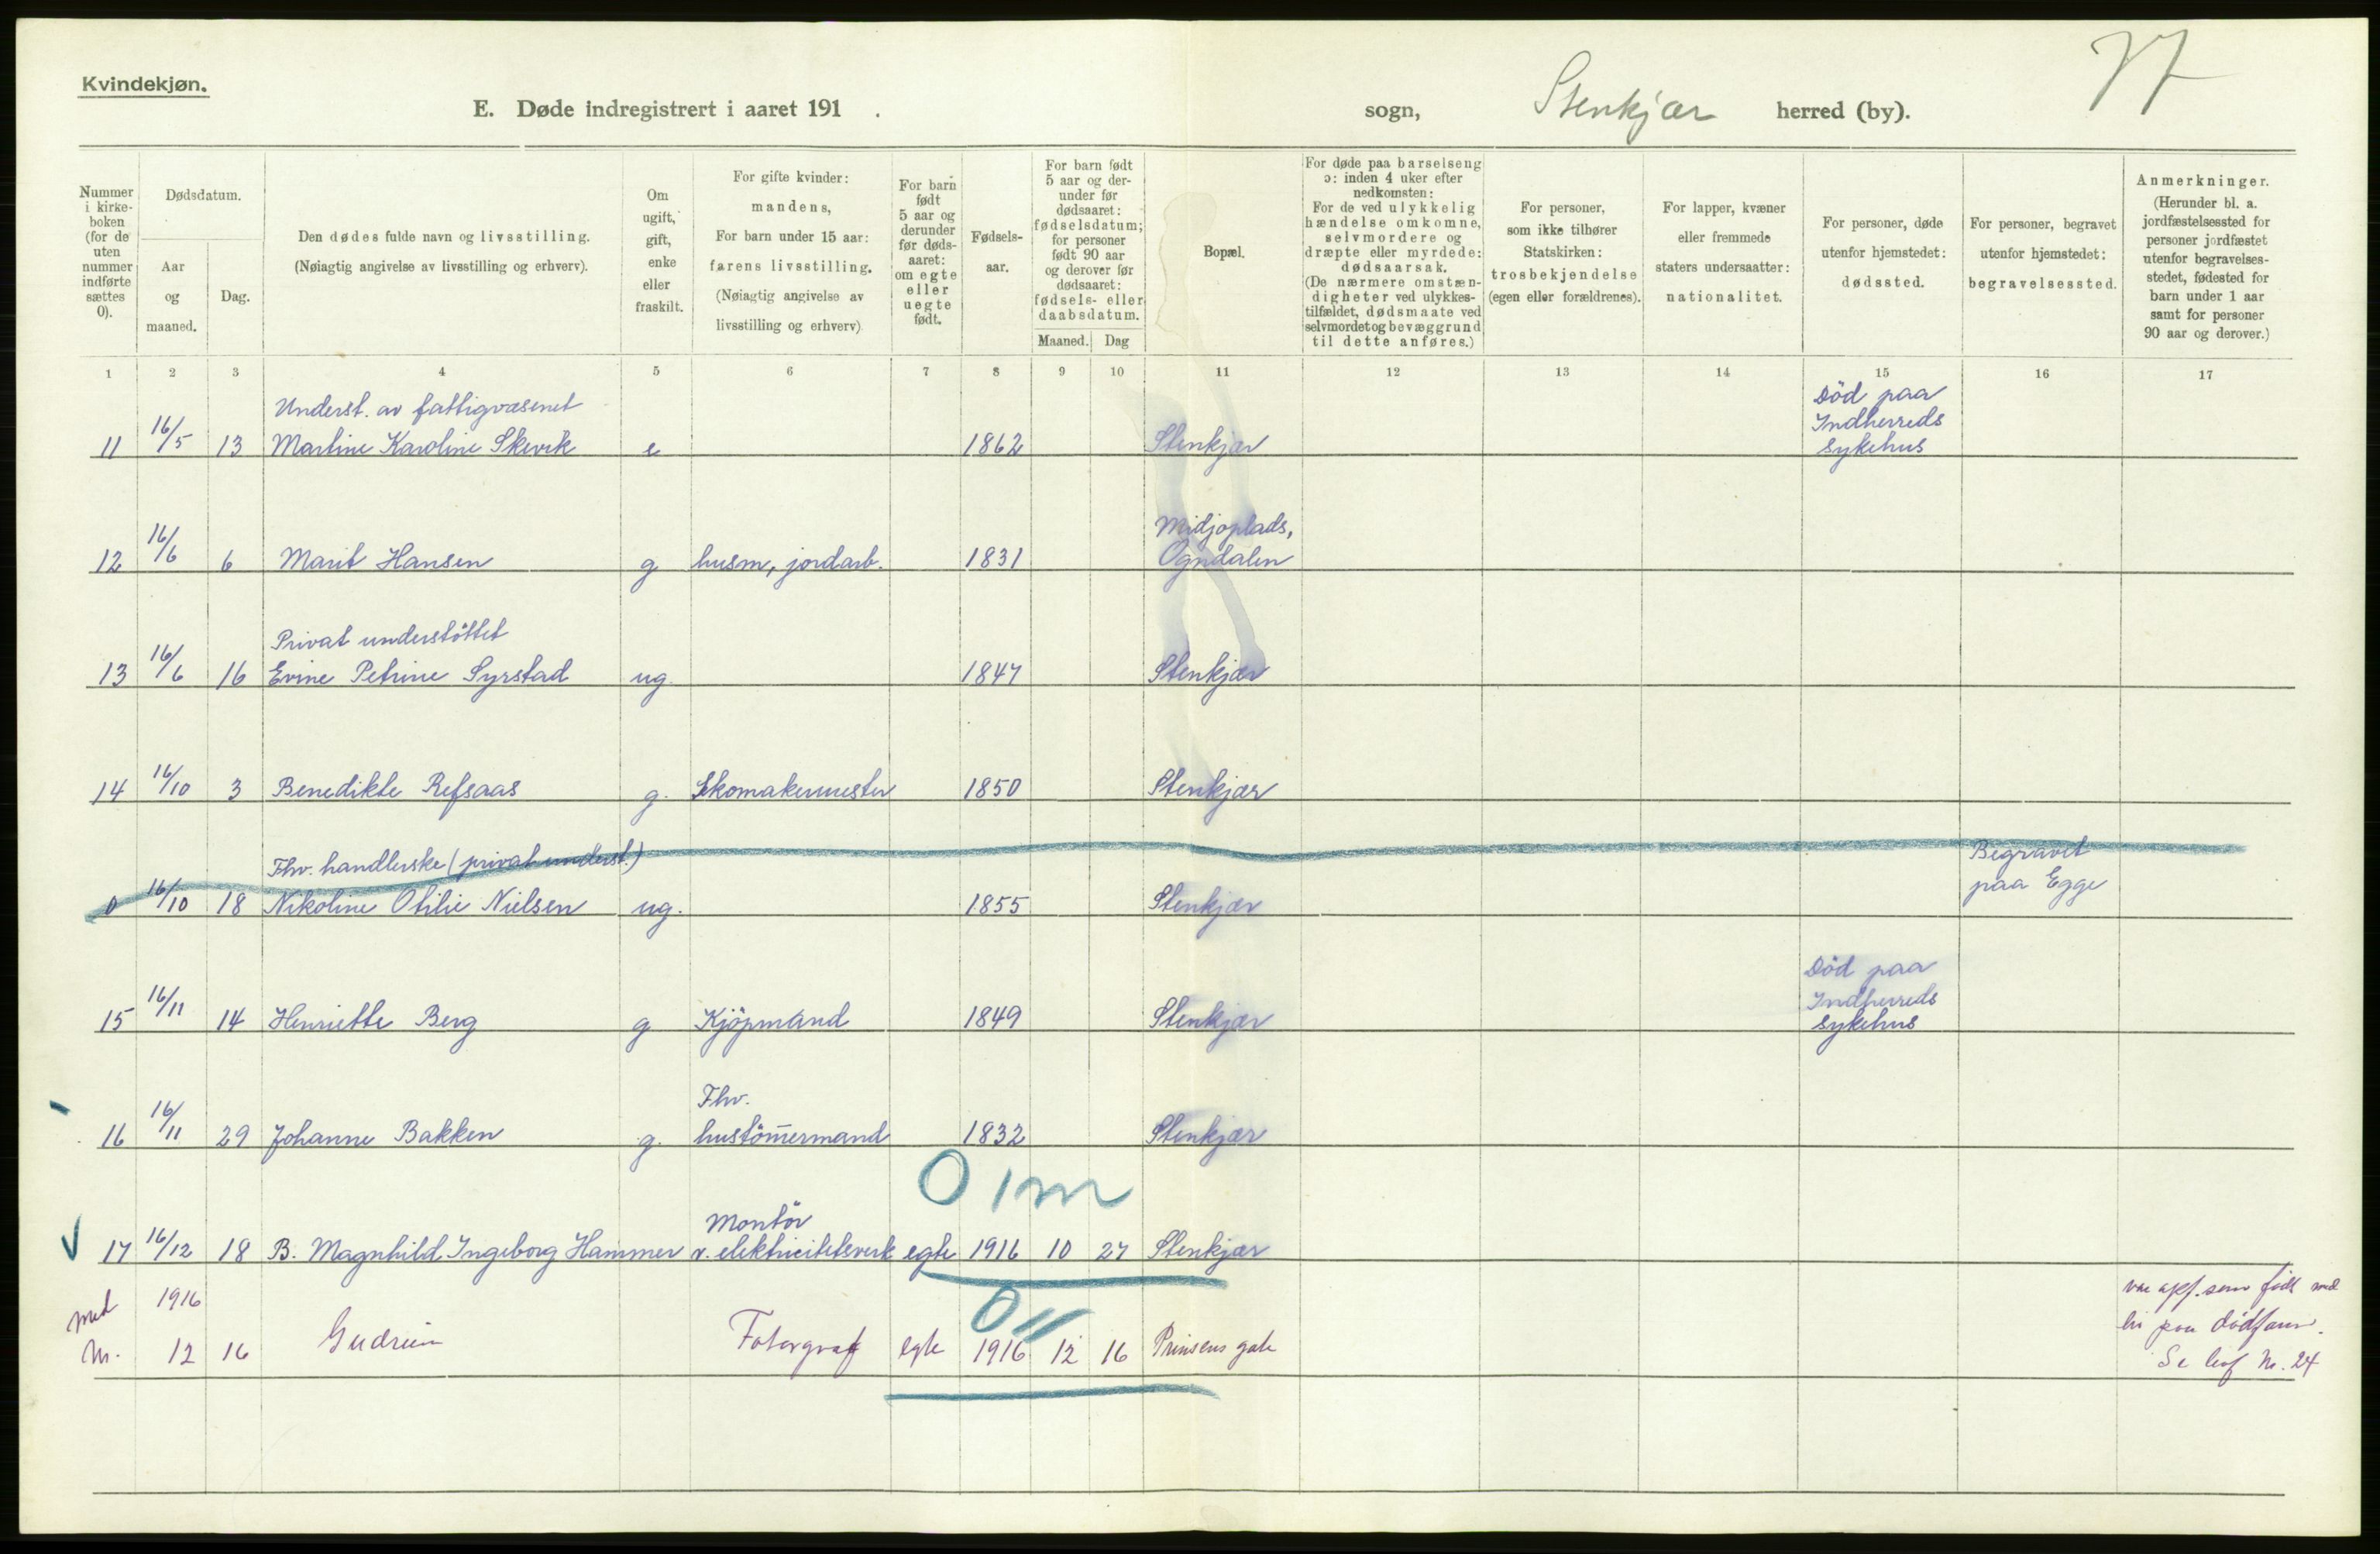 Kvindekjøn.
77
E. Døde indregistrert i aaret 191 .
sogn, Stenkjær herred (by).
Nummer
i kirke-
boken
(for de
uten
nummer
indførte
sættes
0).
Dødsdatum.
Aar
og
maaned.
Dag.
Den dødes fulde navn og livsstilling.
(Nøiagtig angivelse av livsstilling og erhverv).
Om
ugift,
gift,
enke
eller
fraskilt.
For gifte kvinder:
mandens,
For barn under 15 aar:
farens livsstilling.
(Nøiagtig angivelse av
livsstilling og erhverv)
For barn
født
5 aar og
derunder
før døds-
aaret:
om egte
eller
uegte
født.
Fødsels-
aar.
For barn født
5 aar og der-
under før
dødsaaret:
fødselsdatum;
for personer
født 90 aar
og derover før
dødsaaret:
fødsels- eller
daabsdatum.
Maaned. Dag
Bopæl.
For døde paa barselseng
ɔ: inden 4 uker efter
nedkomsten:
For de ved ulykkelig
hændelse omkomne,
selvmordere og
dræpte eller myrdede:
dødsaarsak.
(De nærmere omstæn-
digheter ved ulykkes-
tilfældet, dødsmaate ved
selvmordet og bevæggrund
til dette anføres.)
For personer,
som ikke tilhører
Statskirken:
trosbekjendelse
(egen eller forældrenes).
For lapper, kvæner
eller fremmede
staters undersaatter:
nationalitet.
For personer, døde
utenfor hjemstedet:
dødssted.
For personer, begravet
utenfor hjemstedet:
begravelsessted.
Anmerkninger.
(Herunder bl. a.
jordfæstelsessted for
personer jordfæstet
utenfor begravelses-
stedet, fødested for
barn under 1 aar
samt for personer
90 aar og derover.)
1 2 3 4 5 6 7 8 9 10 11 12 13 14 15 16 17
Underst. av fattigvæsenet
11 16/5 13 Martine Karoline Skevik e 1862 Stenkjær
Död paa
Indherreds
sykehus
Midjoplads,
12 16/6 6 Marit Hansen g husm, jordarb. 1831 Ogndalen
Privat understöttet
13 16/6 16 Evine Petrine Syrstad ug. 1847 Stenkjær
14 16/10 3 Benedikte Refsaas g. Skomakermester 1850 Stenkjær
Fhv. handlerske (privat underst.)
0 16/10 18 Nikoline Otilie Nielsen ug. 1855 Stenkjær
Begravet
paa Egge
15 16/11 14 Henriette Berg g Kjöpmand 1849 Stenkjær
Död paa
Indherreds
sykehus
Fhv.
16 16/11 29 Johanne Bakken g. hustömermand 1832 Stenkjær
0 1 m
Montör
17 16/12 18 B. Magnhild Ingeborg Hammer v. elektricitetsverk egte 1916 10 27 Stenkjær
0 11
1916
12 16 Gudrun Fotograf egte 1916 12 16 Prinsens gate
som født
Nr. 24